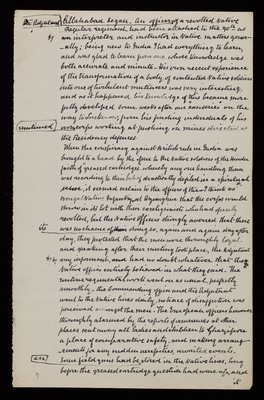 Allahabad began. An officer of a revolted Native
Regular regiment, had been attached to the 90th as
an interpreter and instructor in Native matters gener-
-ally; being new to India I had everything to learn,
and was glad to learn from one whose knowledge was
both accurate and minute. His own recent experience
of the transformation of a body of contented Native soldiers
into one of turbulent mutineers was very interesting,
and as it happened, his knowledge of this became more
fully developed some weeks after our successes on the
way to from his finding individuals of his
corps working at
the Residency defences
When the conspiracy against British rule in India was
brought to a head by the issue to the Native soldiers of the Hindu
faith of greased cartridges, whereby any one handling them
was according to their drastically defiled in a spiritual
sense, it seemed certain to the officers of the
Bengal Native Infantry, at that the corps would
throw in its lot with their
revolted, but the Native Officers strongly averred that there
was no chance of doing so, again and again day after
day, they protested that the men were thoroughly loyal
and quoting after their meeting took place, the Adjutant
my informant, had no doubt whatever that the
Native officers entirely believed in what they said. The
routine regimental work went on as usual, perfectly
smoothly. The Commanding Officer and the Adjutant
went to the Native lines daily, no trace of disaffection was
perceived amongst the men. The European officers however
thoroughly alarmed by the reports of occurrences at other
places sent away all ladies and children to
a place of comparative safety, and making arrang-
-ements for any sudden surprises, awaited events.
Some field guns had been stored in the Native lines, long
before the greased cartridge question had come up, and
it